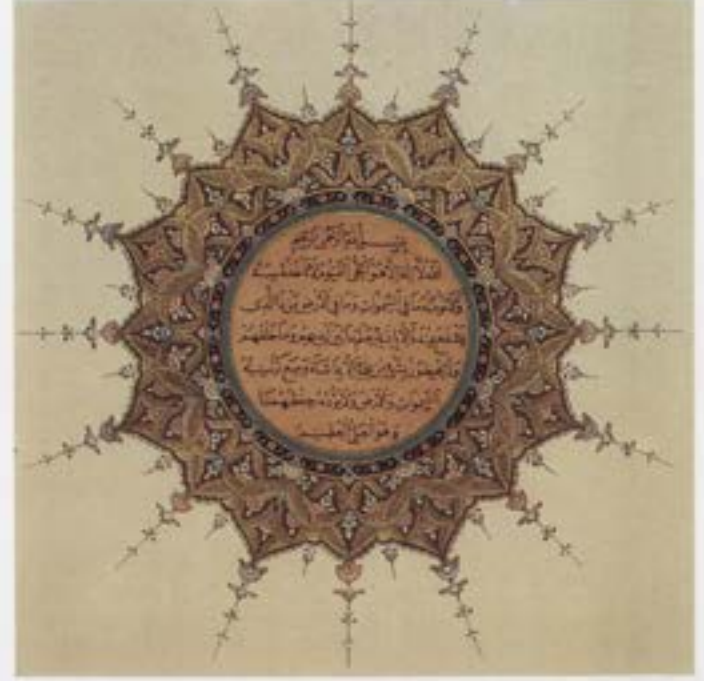 بسم الله الرحمن الرحيم
الله لا إله إلا هو الحي القيوم لا تأخذه سنة
ولا نوم له ما في السموات وما في الأرض من ذا الذي
يشفع عنده إلا بإذنه يعلم ما بين أيديهم وما خلفهم
ولا يحيطون بشيء من علمه إلا بما شاء وسع كرسيه
السموات والأرض ولا يؤده حفظهما
وهو العلي العظيم